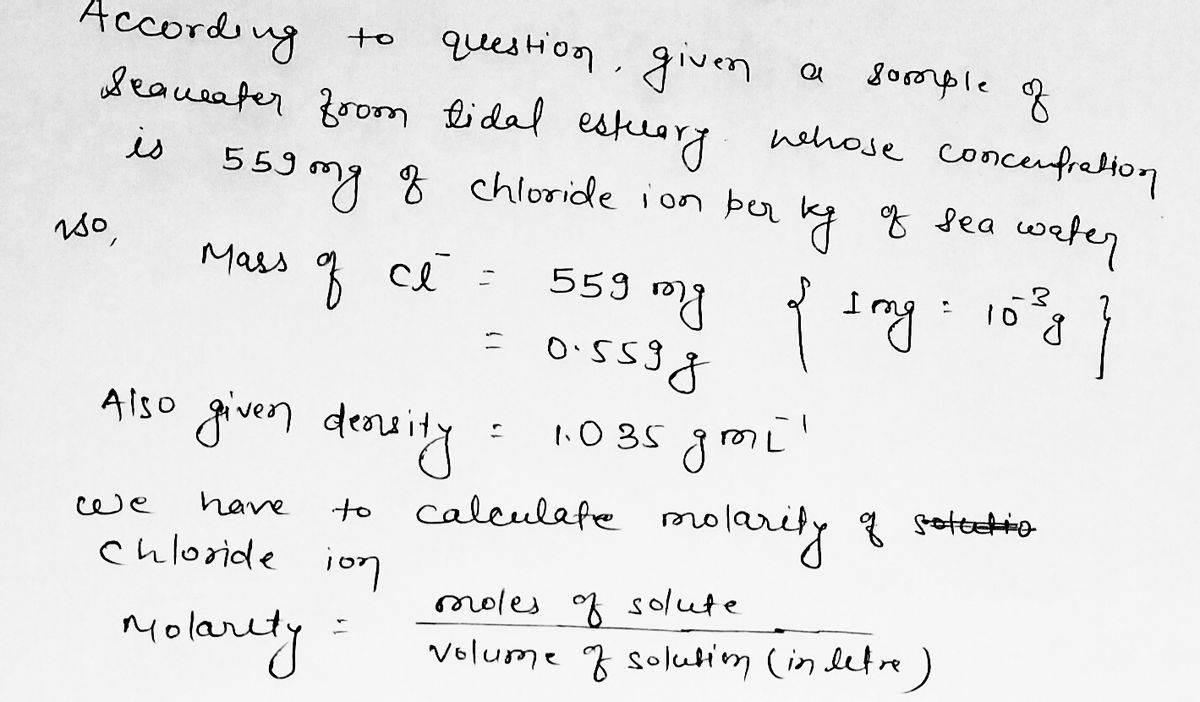 According to question, given a sample of
Seawater from tidal estuary whose concentration
is 559 mg of chloride ion per kg of sea water
so,
Mass of Cl⁻ = 559 mg { 1 mg = 10⁻³ g }
= 0.559 g
Also given density = 1.035 g mL⁻¹
we have to calculate molarity of solutio
chloride ion
Molarity = moles of solute
volume of solution (in letre)